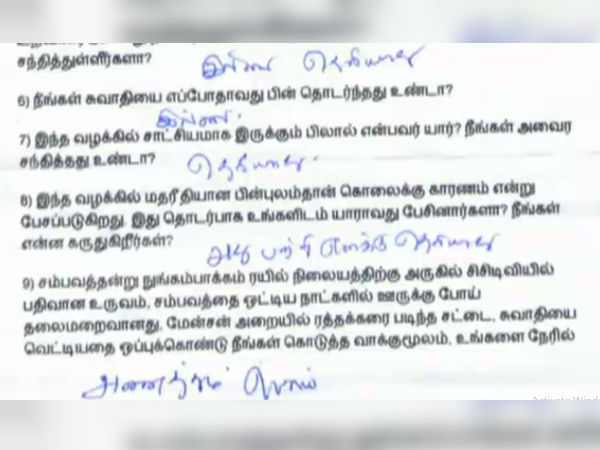 சந்தித்துள்ளீர்களா?
இல்லை தெரியாது
6) நீங்கள் சுவாதியை எப்போதாவது பின் தொடர்ந்தது உண்டா?
இல்லை.
7) இந்த வழக்கில் சாட்சியமாக இருக்கும் பிலால் என்பவர் யார்? நீங்கள் அவரை
சந்தித்தது உண்டா?
தெரியாது.
8) இந்த வழக்கில் மதரீதியான பின்புலம்தான் கொலைக்கு காரணம் என்று
பேசப்படுகிறது. இது தொடர்பாக உங்களிடம் யாராவது பேசினார்களா? நீங்கள்
என்ன கருதுகிறீர்கள்?
அது பற்றி எனக்கு தெரியாது
9) சம்பவத்தன்று நுங்கம்பாக்கம் ரயில் நிலையத்திற்கு அருகில் சிசிடிவியில்
பதிவான உருவம், சம்பவத்தை ஒட்டிய நாட்களில் ஊருக்கு போய்
தலைமறைவானது, மேன்சன் அறையில் ரத்தக்கரை படிந்த சட்டை, சுவாதியை
வெட்டியதை ஒப்புக்கொண்டு நீங்கள் கொடுத்த வாக்குமூலம், உங்களை நேரில்
அனைத்தும் பொய்